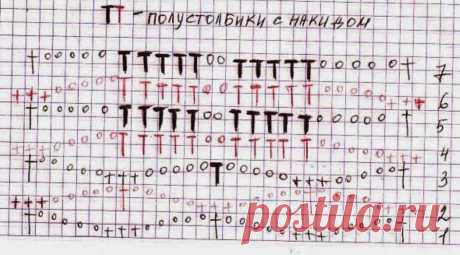 ТТ - ПОЛУСТОЛБИКИ С НАКИДОМ
7
6
5
4
3
2
1
postila.ru